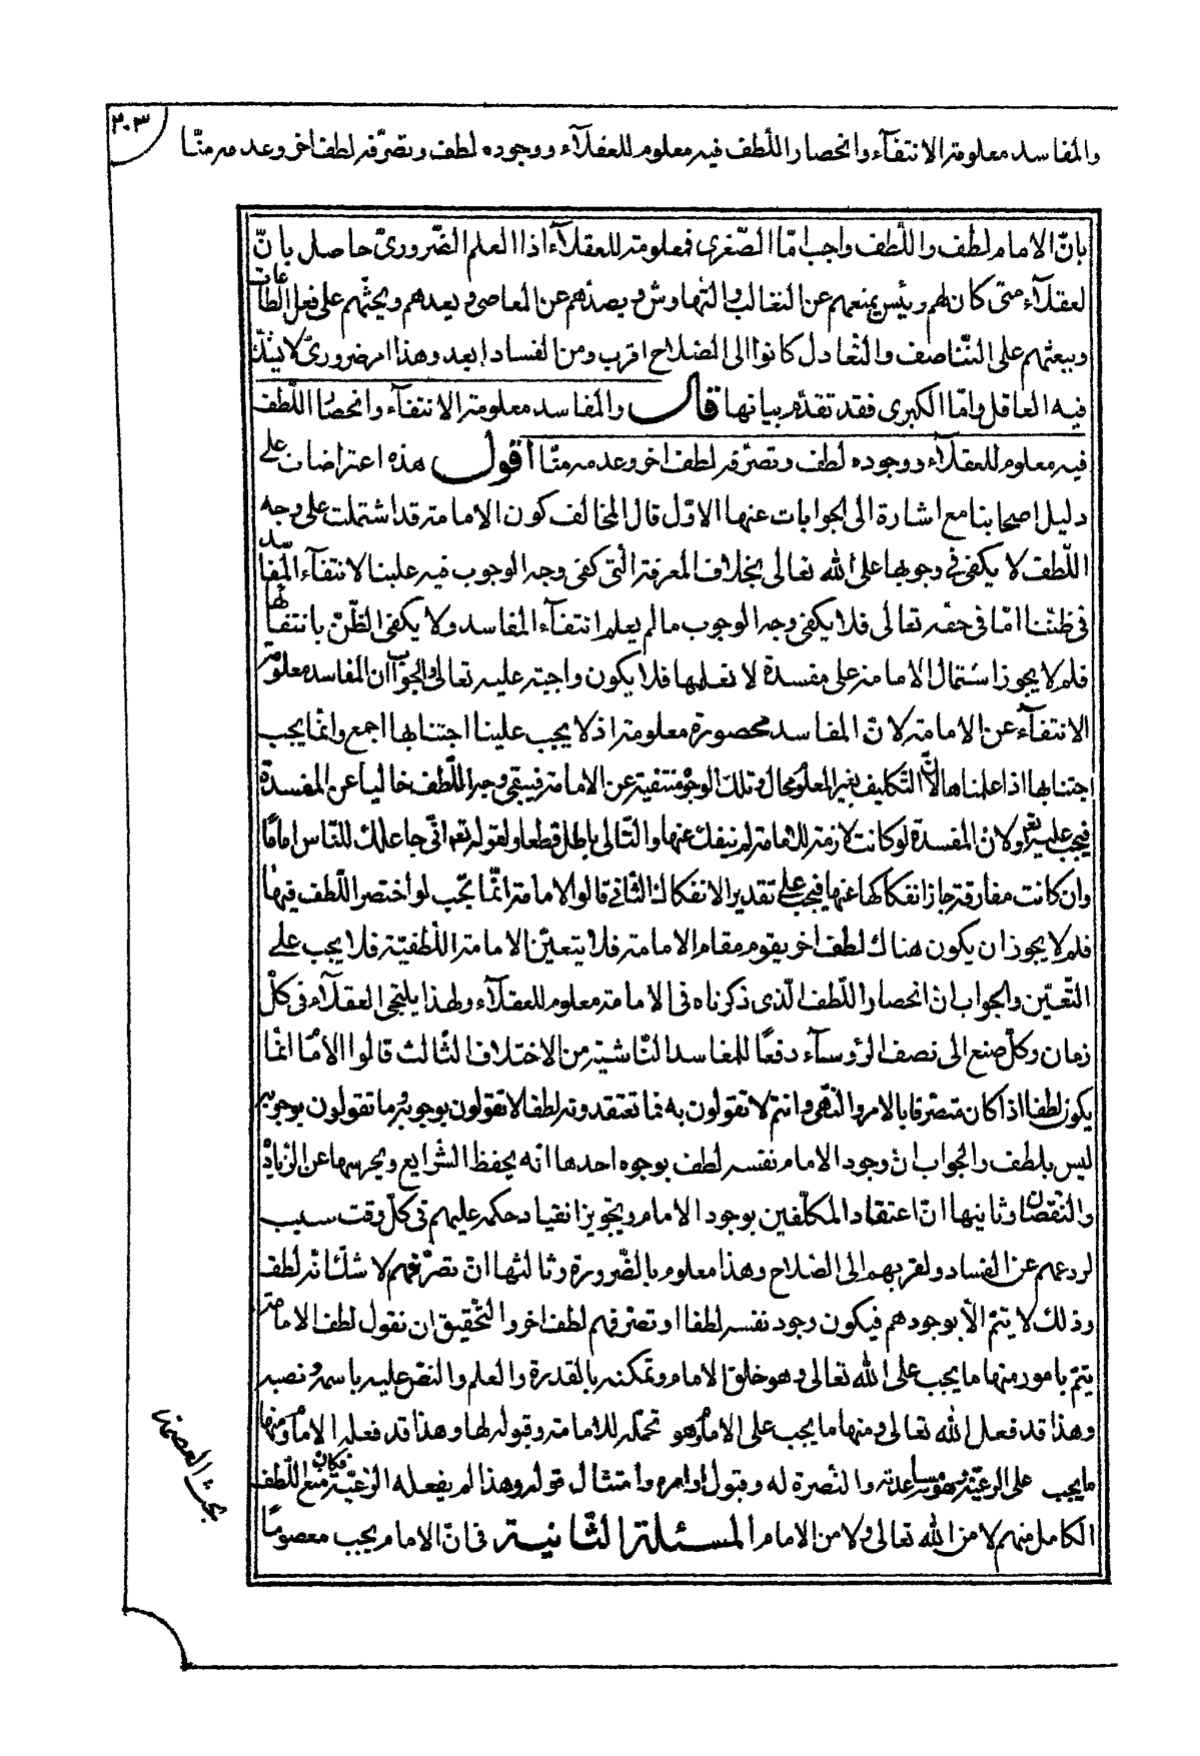 ٣٠٣
والمفاسد معلومة الانتفآء وانحصار اللّطف فيه معلوم للعقلآء ووجوده لطف وتصرّفه لطف اخر وعدمه منّا
بانّ الامام لطف واللّطف واجب امّا الصّغرى فمعلومة للعقلآء اذ العلم الضّرورىّ حاصل بانّ
العقلآء متى كان لهم رئيس يمنعهم عن التغالب والتهاوش ويصدّهم عن المعاصى ويعدهم ويحثّهم على فعل الطّاعات
ويبعثهم على التّناصف والتّعادل كانوا الى الصّلاح اقرب ومن الفساد ابعد وهذا امر ضرورىّ لا يشكّ
فيه العاقل وامّا الكبرى فقد تقدّم بيانها قال والمفاسد معلومة الانتفآء وانحصار اللّطف
فيه معلوم للعقلآء ووجوده لطف وتصرّفه لطف اخر وعدمه منّا اقول هذه اعتراضات على
دليل اصحابنا مع اشارة الى الجوابات عنها الاوّل قال المخالف كون الامامة قد اشتملت على وجه
اللّطف لا يكفى فى وجوبها على الله تعالى بخلاف المعرفة الّتى كفى وجه الوجوب فيه علينا لانتفآء المفاسد
فى ظنّنا امّا فى حقّه تعالى فلا يكفى وجه الوجوب ما لم يعلم انتفآء المفاسد ولا يكفى الظّنّ بانتفائها
فلم لا يجوز اشتمال الامامة على مفسدة لا نعلمها فلا يكون واجبة عليه تعالى والجواب ان المفاسد معلومة
الانتفآء عن الامامة لانّ المفاسد محصورة معلومة اذ لا يجب علينا اجتنابها اجمع وانّما يجب
اجتنابها اذا علمناها لانّ التّكليف بغير المعلوم محال وتلك الوجوه منتفية عن الامامة فيبقى وجه اللّطف خاليا عن المفسدة
فيجب عليه تعالى ولانّ المفسدة لو كانت لازمة للامامة لم ينفك عنها والتّالى باطل قطعا ولقوله تعالى انّى جاعلك للنّاس امامًا
وان كانت مفارقة جاز انفكاكها عنها فيجب على تقدير الانفكاك الثّانى قالوا الامامة انّما تجب لو اختصر اللّطف فيها
فلم لا يجوز ان يكون هناك لطف اخر يقوم مقام الامامة فلا يتعيّن الامامة اللّطفيّة فلا يجب على
التّعيّن والجواب انّ انحصار اللّطف الّذى ذكرناه فى الامامة معلوم للعقلآء ولهذا يلتجى العقلآء فى كلّ
زمان وكلّ صنع الى نصف الرّؤسآء دفعًا للمفاسد النّاشية من الاختلاف الثّالث قالوا الامام انّما
يكون لطفا اذا كان متصرّفا بالامر والنّهى وانتم لا تقولون به فما تعتقدونه لطفا لا تقولون بوجوبه وما تقولون بوجوبه
ليس بلطف والجواب انّ وجود الامام نفسه لطف بوجوه احدها انه يحفظ الشّرايع ويحرسها عن الزّيادة
والنّقصان وثانيها انّ اعتقاد المكلّفين بوجود الامام وتجويز انقياد حكمه عليهم فى كلّ وقت سبب
لردعهم عن الفساد ولقربهم الى الصّلاح وهذا معلوم بالضّرورة وثالثها انّ تصرّفهم لا شكّ انّه لطف
وذلك لا يتمّ الّا بوجودهم فيكون وجود نفسه لطفا وتصرّفهم لطف اخر والتّحقيق ان نقول لطف الامامة
يتمّ بامور منها ما يجب على الله تعالى وهو خلق الامام وتمكنه بالقدرة والعلم والنّصّ عليه باسمه ونصبه
وهذا قد فعل الله تعالى ومنها ما يجب على الامام وهو تحمّله للامامة وقبوله لها وهذا قد فعله الامام ومنها
ما يجب على الرعيّة وهو مساعدته والنّصرة له وقبول اوامره وامتثال قوله وهذا لم يفعله الرّعيّة فكان منع اللّطف
الكامل منهم لا من الله تعالى ولا من الامام المسئلة الثّانية فى انّ الامام يجب معصومًا
بحث العصمة